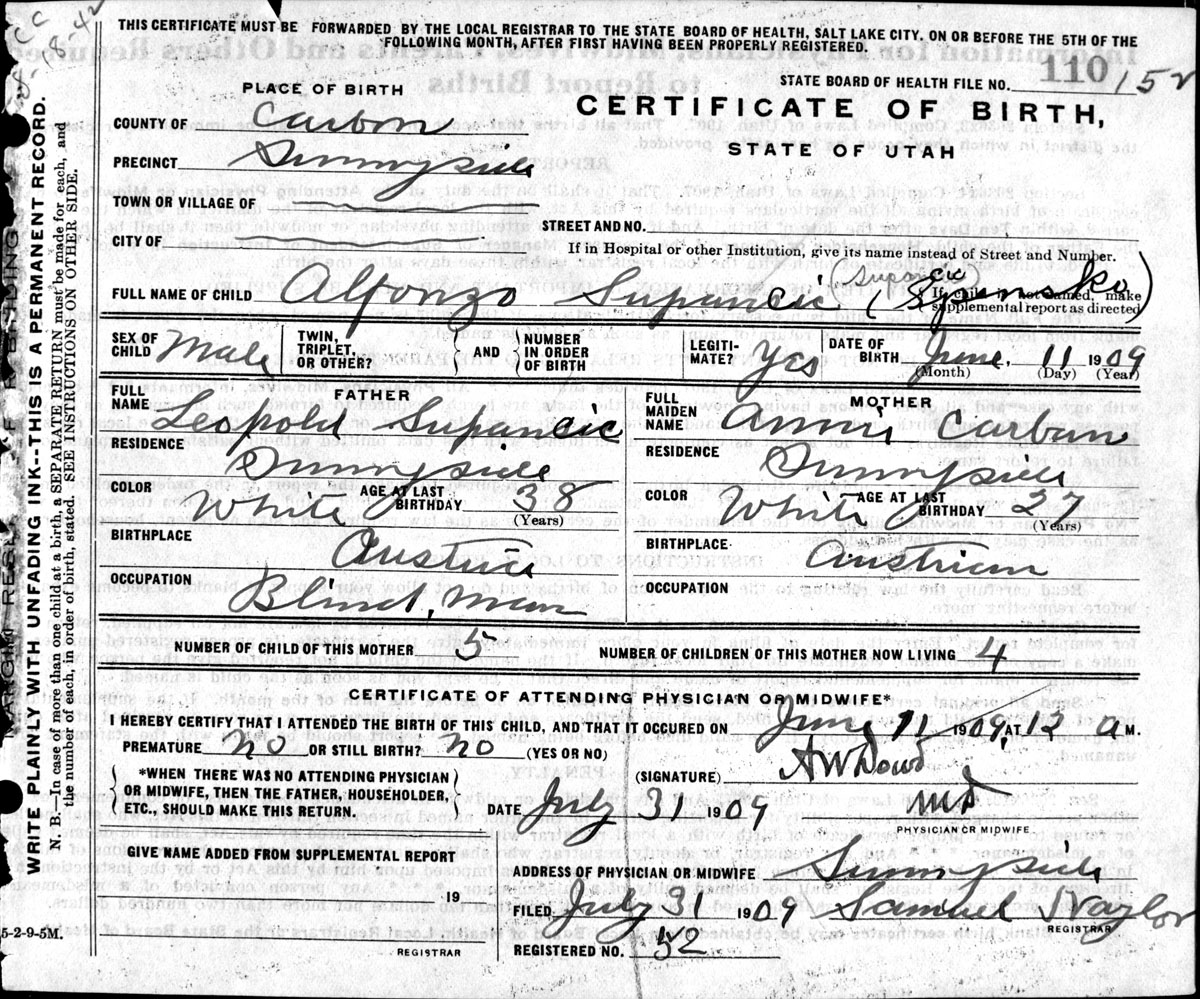 THIS CERTIFICATE MUST BE FORWARDED BY THE LOCAL REGISTRAR TO THE STATE BOARD OF HEALTH, SALT LAKE CITY, ON OR BEFORE THE 5TH OF THE
FOLLOWING MONTH, AFTER FIRST HAVING BEEN PROPERLY REGISTERED.
STATE BOARD OF HEALTH FILE NO. 110 152
PLACE OF BIRTH
CERTIFICATE OF BIRTH,
STATE OF UTAH
COUNTY OF Carbon
PRECINCT Sunnyside
TOWN OR VILLAGE OF
STREET AND NO.
CITY OF
If in Hospital or other Institution, give its name instead of Street and Number.
FULL NAME OF CHILD Alfonzo Supancic
If child is not named, make
supplemental report as directed
SEX OF CHILD Male TWIN, TRIPLET, OR OTHER? AND NUMBER IN ORDER OF BIRTH LEGITI-MATE? Yes DATE OF BIRTH June, 11 1909
(Month) (Day) (Year)
FATHER
FULL NAME Leopold Supancic
RESIDENCE Sunnyside
COLOR White AGE AT LAST BIRTHDAY 38
(Years)
BIRTHPLACE Austria
OCCUPATION Blind, Man
MOTHER
FULL MAIDEN NAME Carban
RESIDENCE Sunnyside
COLOR White AGE AT LAST BIRTHDAY 27
(Years)
BIRTHPLACE Austrian
OCCUPATION
NUMBER OF CHILD OF THIS MOTHER 5 NUMBER OF CHILDREN OF THIS MOTHER NOW LIVING 4
CERTIFICATE OF ATTENDING PHYSICIAN OR MIDWIFE*
I HEREBY CERTIFY THAT I ATTENDED THE BIRTH OF THIS CHILD, AND THAT IT OCCURED ON June 11 1909, AT 12 a M.
PREMATURE no OR STILL BIRTH? no (YES OR NO)
(SIGNATURE) A W Dowd
*WHEN THERE WAS NO ATTENDING PHYSICIAN
OR MIDWIFE, THEN THE FATHER, HOUSEHOLDER,
ETC., SHOULD MAKE THIS RETURN.
DATE July 31 1909 MD
PHYSICIAN OR MIDWIFE
GIVE NAME ADDED FROM SUPPLEMENTAL REPORT
19
REGISTRAR
ADDRESS OF PHYSICIAN OR MIDWIFE Sunnyside
FILED July 31 1909 Samuel Naylor
REGISTRAR
REGISTERED NO. 52
5-2-9-5M.
WRITE PLAINLY WITH UNFADING INK--THIS IS A PERMANENT RECORD.
N. B.—In case of more than one child at a birth, a SEPARATE RETURN must be made for each, and
the number of each, in order of birth, stated. SEE INSTRUCTIONS ON OTHER SIDE.